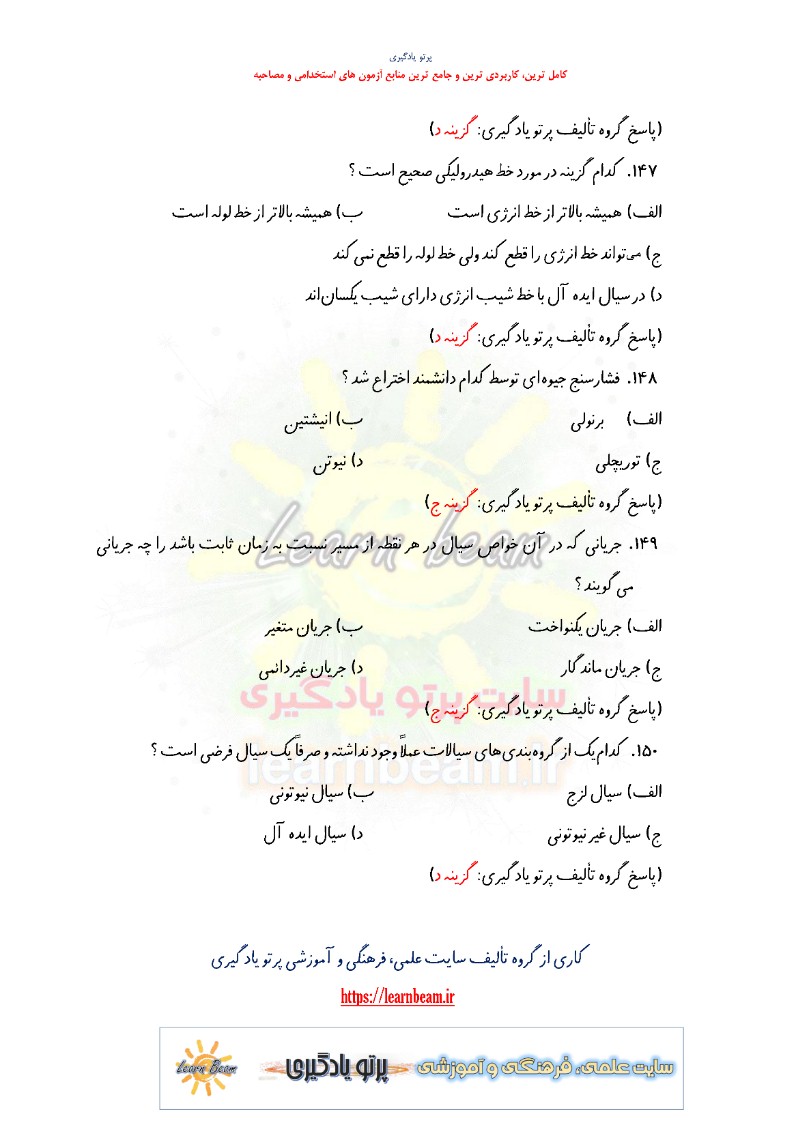 پرتو یادگیری
کامل ترین، کاربردی ترین و جامع ترین منابع آزمون های استخدامی و مصاحبه
(پاسخ گروه تألیف پرتو یادگیری: گزینه د)
۱۴۷. کدام گزینه در مورد خط هیدرولیکی صحیح است ؟
الف) همیشه بالاتر از خط انرژی است ب) همیشه بالاتر از خط لوله است
ج) می‌تواند خط انرژی را قطع کند ولی خط لوله را قطع نمی کند
د) در سیال ایده آل با خط شیب انرژی دارای شیب یکسان‌اند
(پاسخ گروه تألیف پرتو یادگیری: گزینه د)
۱۴۸. فشارسنج جیوه‌ای توسط کدام دانشمند اختراع شد ؟
الف) برنولی ب) انیشتین
ج) توریچلی د) نیوتن
(پاسخ گروه تألیف پرتو یادگیری: گزینه ج)
۱۴۹. جریانی که در آن خواص سیال در هر نقطه از مسیر نسبت به زمان ثابت باشد را چه جریانی
می گویند ؟
الف) جریان یکنواخت ب) جریان متغیر
ج) جریان ماندگار د) جریان غیردائمی
(پاسخ گروه تألیف پرتو یادگیری: گزینه ج)
۱۵۰. کدام‌یک از گروه‌بندی‌های سیالات عملاً وجود نداشته و صرفاً یک سیال فرضی است ؟
الف) سیال لزج ب) سیال نیوتونی
ج) سیال غیر نیوتونی د) سیال ایده آل
(پاسخ گروه تألیف پرتو یادگیری: گزینه د)
Learn beam
سایت پرتو یادگیری
learnbeam.ir
کاری از گروه تألیف سایت علمی، فرهنگی و آموزشی پرتو یادگیری
https://learnbeam.ir
سایت علمی، فرهنگی و آموزشی پرتو یادگیری Learn Beam